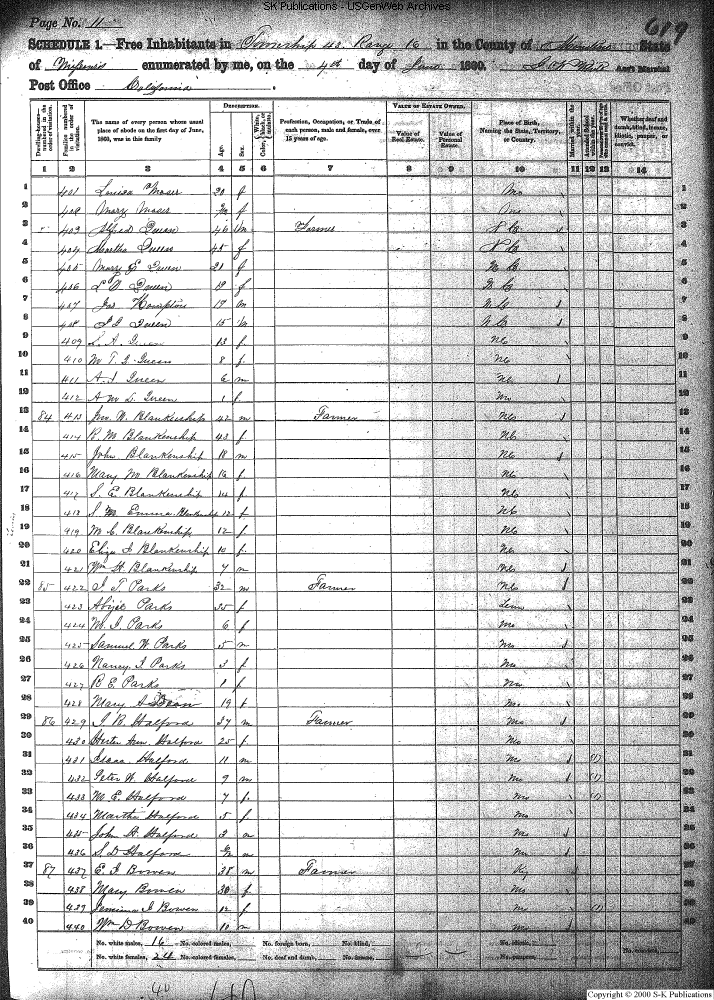 SK Publications - USGenWeb Archives
Page No. 11
619
SCHEDULE 1.—Free Inhabitants in Township 45 Range 16 in the County of Moniteau State
of Missouri enumerated by me, on the 4th day of June 1860. Ass't Marshal
Post Office California
Dwelling-houses—numbered in the order of visitation.
Families numbered in the order of visitation.
The name of every person whose usual place of abode on the first day of June, 1860, was in this family
DESCRIPTION.
Age.
Sex.
Color, White, black, or mulatto.
Profession, Occupation, or Trade of each person, male and female, over 15 years of age.
VALUE OF ESTATE OWNED.
Value of Real Estate.
Value of Personal Estate.
Place of Birth, Naming the State, Territory, or Country.
Married within the year.
Attended School within the year.
Whether deaf and dumb, blind, insane, idiotic, pauper, or convict.
1 2 3 4 5 6 7 8 9 10 11 12 13 14
1 401 Louisa Moser 20 f Mo 1
2 402 Mary Moser f Mo 2
3 403 Alfred Queen 46 m Farmer N C 3
4 404 Martha Queen 45 f N C 4
5 405 Mary E Queen 21 f N C 5
6 406 L Queen 19 f N C 6
7 407 Jas Hampton 17 m N C 7
8 408 Queen 15 m N C 8
9 409 L. A. Queen 13 f NC 9
10 410 M T. J. Queen 8 f NC 10
11 411 A. J. Queen 6 m NC 11
12 412 A M L. Queen 1 f Mo 12
13 84 413 Jno. W. Blankenship 42 m Farmer NC 13
14 414 R. M Blankenship 43 f NC 14
15 415 John Blankenship 18 m NC 15
16 416 Mary M Blankenship 16 f NC 16
17 417 S. E Blankenship 14 f NC 17
18 418 S M Emma Blankenship 12 f NC 18
19 419 M C. Blankenship 12 f NC 19
20 420 Eliza J. Blankenship 10 f NC 20
21 421 Wm H. Blankenship 7 m NC 21
22 85 422 J. T. Parks 32 m Farmer NC 22
23 423 Parks 35 f Tenn 23
24 424 M. J. Parks 6 f Mo 24
25 425 Samuel W. Parks 5 m Mo 25
26 426 Nancy J Parks 3 f Mo 26
27 427 R E. Parks 1 f Mo 27
28 428 Mary A Dean 19 f Mo 28
29 86 429 J. B. Halford 37 m Farmer Mo 29
30 430 Hester Ann Halford 25 f Mo 30
31 431 Isaac Halford 11 m Mo (1) 31
32 432 Peter W. Halford 9 m Mo (1) 32
33 433 M. E. Halford 7 f Mo (1) 33
34 434 Martha Halford 5 f Mo 34
35 435 John H. Halford 3 m Mo 35
36 436 S. D Halford m Mo 36
37 87 437 E. J Bowen 38 m Farmer Ky 37
38 438 Mary Bowen 30 f Mo 38
39 439 Jemima J Bowen 12 f Mo (1) 39
40 440 Wm D Bowen 10 m Mo 40
No. white males, 16 No. colored males, No. foreign born, No. blind, No. idiotic,
No. white females, 24 No. colored females, No. deaf and dumb, No. insane, No. paupers, No. convicts,
40
Copyright © 2000 S-K Publications